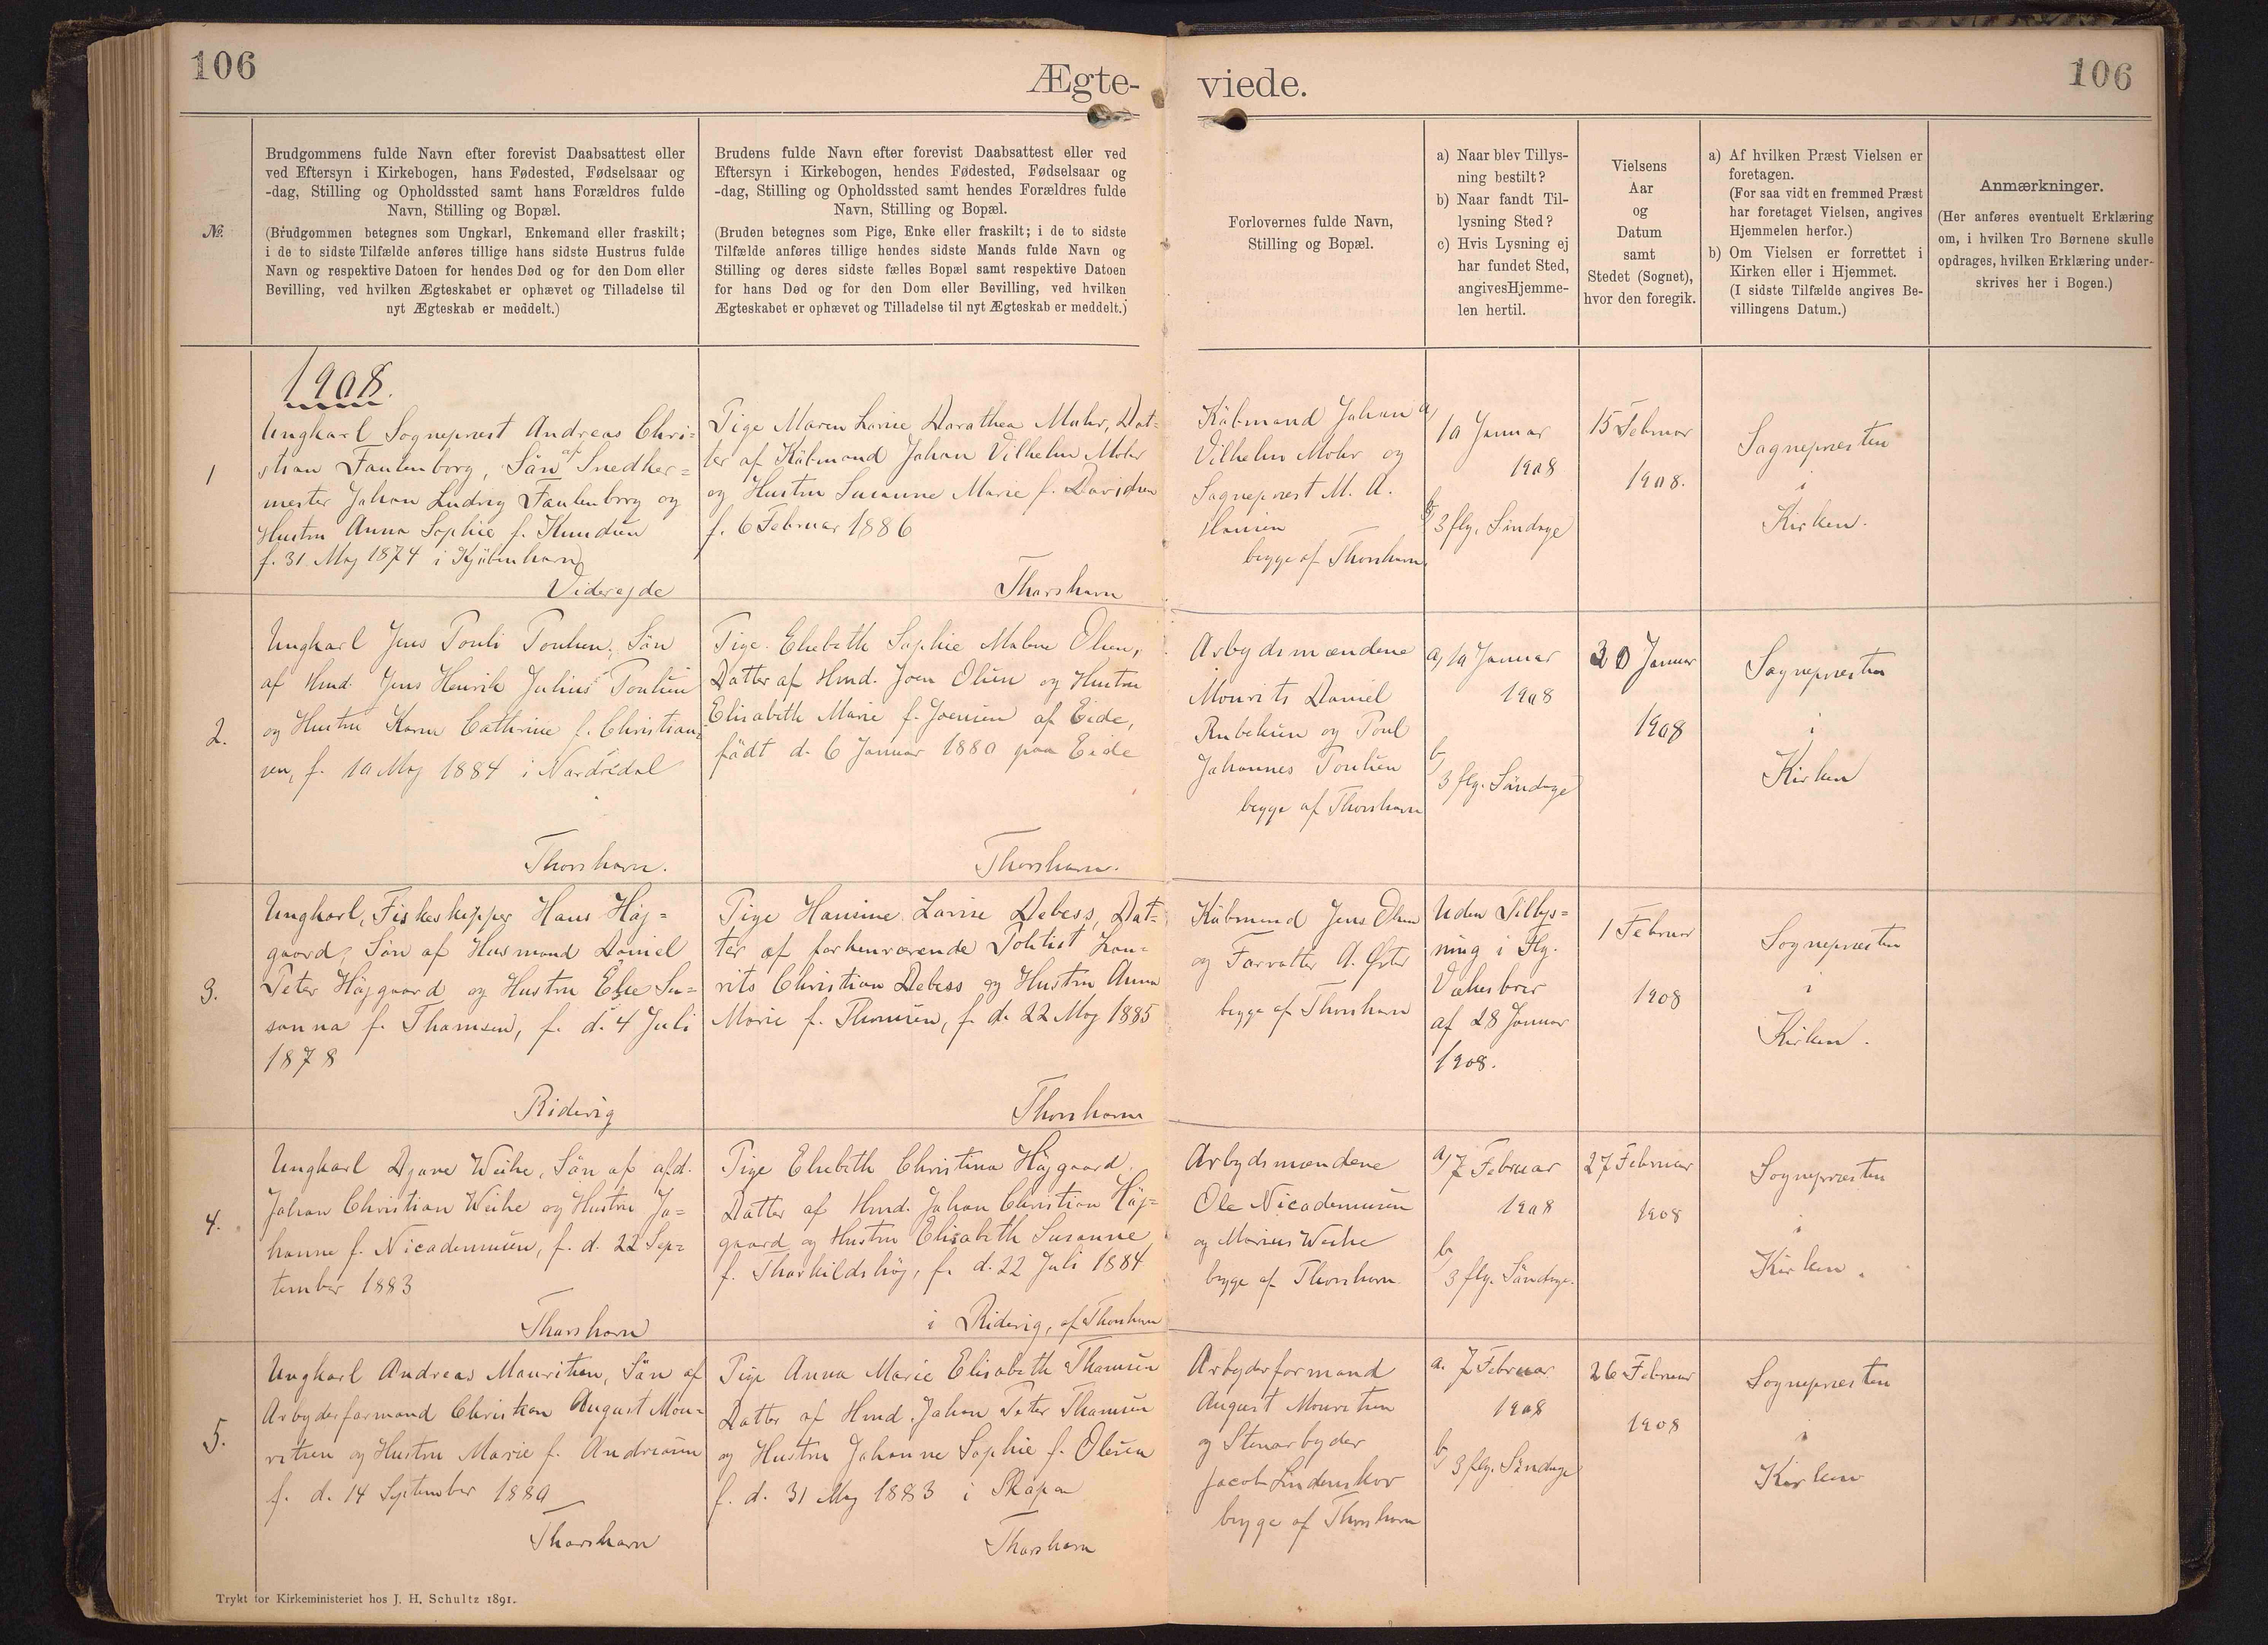 106
Ægte-
viede.
106
№.
Brudgommens fulde Navn efter forevist Daabsattest eller
ved Eftersyn i Kirkebogen, hans Fødested, Fødselsaar og
-dag, Stilling og Opholdssted samt hans Forældres fulde
Navn, Stilling og Bopæl.
(Brudgommen betegnes som Ungkarl, Enkemand eller fraskilt;
i de to sidste Tilfælde anføres tillige hans sidste Hustrus fulde
Navn og respektive Datoen for hendes Død og for den Dom eller
Bevilling, ved hvilken Ægteskabet er ophævet og Tilladelse til
nyt Ægteskab er meddelt.)
Brudens fulde Navn efter forevist Daabsattest eller ved
Eftersyn i Kirkebogen, hendes Fødested, Fødselsaar og
-dag, Stilling og Opholdssted samt hendes Forældres fulde
Navn, Stilling og Bopæl.
(Bruden betegnes som Pige, Enke eller fraskilt; i de to sidste
Tilfælde anføres tillige hendes sidste Mands fulde Navn og
Stilling og deres sidste fælles Bopæl samt respektive Datoen
for hans Død og for den Dom eller Bevilling, ved hvilken
Ægteskabet er ophævet og Tilladelse til nyt Ægteskab er meddelt.)
Forlovernes fulde Navn,
Stilling og Bopæl.
a) Naar blev Tillys-
ning bestilt?
b) Naar fandt Til-
lysning Sted?
c) Hvis Lysning ej
har fundet Sted,
angives Hjemme-
len hertil.
Vielsens
Aar
og
Datum
samt
Stedet (Sognet),
hvor den foregik.
a) Af hvilken Præst Vielsen er
foretagen.
(For saa vidt en fremmed Præst
har foretaget Vielsen, angives
Hjemmelen herfor.)
b) Om Vielsen er forrettet i
Kirken eller i Hjemmet.
(I sidste Tilfælde angives Be-
villingens Datum.)
Anmærkninger.
(Her anføres eventuelt Erklæring
om, i hvilken Tro Børnene skulle
opdrages, hvilken Erklæring under-
skrives her i Bogen.)
1908.
1
Ungkarl Sognepræst Andreas Chri=
stian Faulenborg, Sön af Snedker=
mester Johan Ludvig Faulenborg og
Hustru Anna Sophie f. Knudsen
f. 31 Maj 1874 i Kjöbenhavn
Viderejde
Pige Maren Lovise Dorothea Mohr, Dat=
ter af Köbmand Johan Vilhelm Mohr
og Hustru Susanne Marie f. Davidsen
f. 6 Februar 1886
Thorshavn
Köbmand Johan
Vilhelm Mohr og
Sognepræst M. A.
Hansen
begge af Thorshavn
a) 10 Januar
1908
b) 3 flg. Söndage
15 Februar
1908.
Sognepræsten
i
Kirken.
2.
Ungkarl Jens Pouli Poulsen, Sön
af Hmd. Jens Henrik Julius Poulsen
og Hustru Karen Cathrine f. Christian=
sen, f. 10 Maj 1884 i Nordredal
Thorshavn.
Pige Elsebeth Sophie Malene Olsen,
Datter af Hmd. Joen Olsen og Hustru
Elisabeth Marie f. Joensen af Eide,
född d. 6 Januar 1880 paa Eide
Thorshavn.
Arbejdsmændene
Mourits Daniel
Rubeksen og Poul
Johannes Poulsen
begge af Thorshavn
a) 10 Januar
1908
b)
3 flg. Söndage
30 Januar
1908
Sognepræsten
i
Kirken
3.
Ungkarl, Fiskeskipper Hans Höj=
gaard, Sön af Husmand Daniel
Peter Höjgaard og Hustru Else Su=
sanna f. Thomsen, f. d. 4 Juli
1878
Ridevig
Pige Hansine Lovise Debess, Dat=
ter af forhenværende Politist Lau=
rits Christian Debess og Hustru Anna
Marie f. Thomsen, f. d. 22 Maj 1885
Thorshavn
Köbmand Jens Olsen
og Forvalter A. Öster
begge af Thorshavn
Uden Tillys=
ning i Flg.
af 28 Januar
1908.
1 Februar
1908
Sognepræsten
i
Kirken.
4.
Ungkarl Djone Weihe, Sön af afd.
Johan Christian Weihe og Hustru Jo=
hanne f. Nicodemusen, f. d. 22 Sep=
tember 1883
Thorshavn
Pige Elsebeth Christina Höjgaard,
Datter af Hmd. Johan Christian Höj=
gaard og Hustru Elisabeth Susanne
f. Thorkildshöj, f. d. 22 Juli 1884
i Ridevig, af Thorshavn
Arbejdsmændene
Ole Nicodemusen
og Marius Weihe
begge af Thorshavn.
a) 7 Februar
1908
b)
3 flg. Söndage.
27 Februar
1908
Sognepræsten
i
Kirken.
5.
Ungkarl Andreas Mouritsen, Sön af
Arbejderformand Christian August Mou=
ritsen og Hustru Marie f. Andreasen
f. d. 14 September 1880
Thorshavn
Pige Anna Marie Elisabeth Thomsen
Datter af Hmd. Johan Peter Thomsen
og Hustru Johanne Sophie f. Olesen
f. d. 31 Maj 1883 i Skopen
Thorshavn
Arbejderformand
August Mouritsen
og Stenarbejder
Jacob Lindenskov
begge af Thorshavn
a. 7 Februar
1908
b) 3 flg. Söndage
26 Februar
1908
Sognepræsten
i
Kirken
Trykt for Kirkeministeriet hos J. H. Schultz 1891.